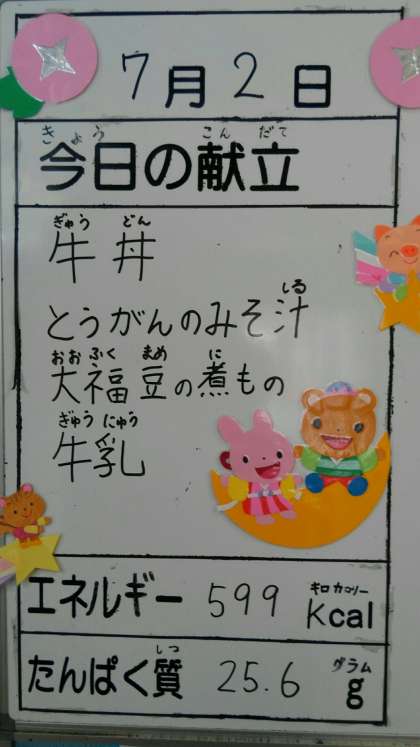 7月2日
きょう こんだて
今日の献立
ぎゅう どん
牛丼
しる
とうがんのみそ汁
おおふく まめ に
大福豆の煮もの
ぎゅうにゅう
牛乳
キロカロリー
エネルギー 599 Kcal
しつ グラム
たんぱく質 25.6 g